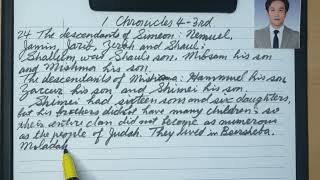 1 Chronicles 4-3rd
24 The descendants of Simeon: Nemuel,
Jamin, Jarib, Zerah and Shaul;
Shallum was Shaul's son, Mibsam his son
and Mishma his son.
The descendants of Mishma: Hammuel his son
Zaccur his son and Shimei his son.
Shimei had sixteen sons and six daughters,
but his brothers did not have many children; so
their entire clan did not become as numerous
as the people of Judah. They lived in Beersheba,
Moladah